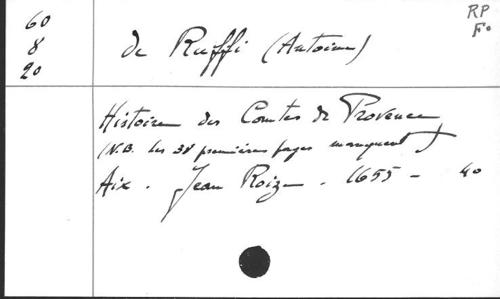 60
8
20
RP
F°
de Ruffi (Antoine)
Histoire des Comtes de Provence
(N.B. les 38 premières pages manquent)
Aix. Jean Roize. 1655 - 40